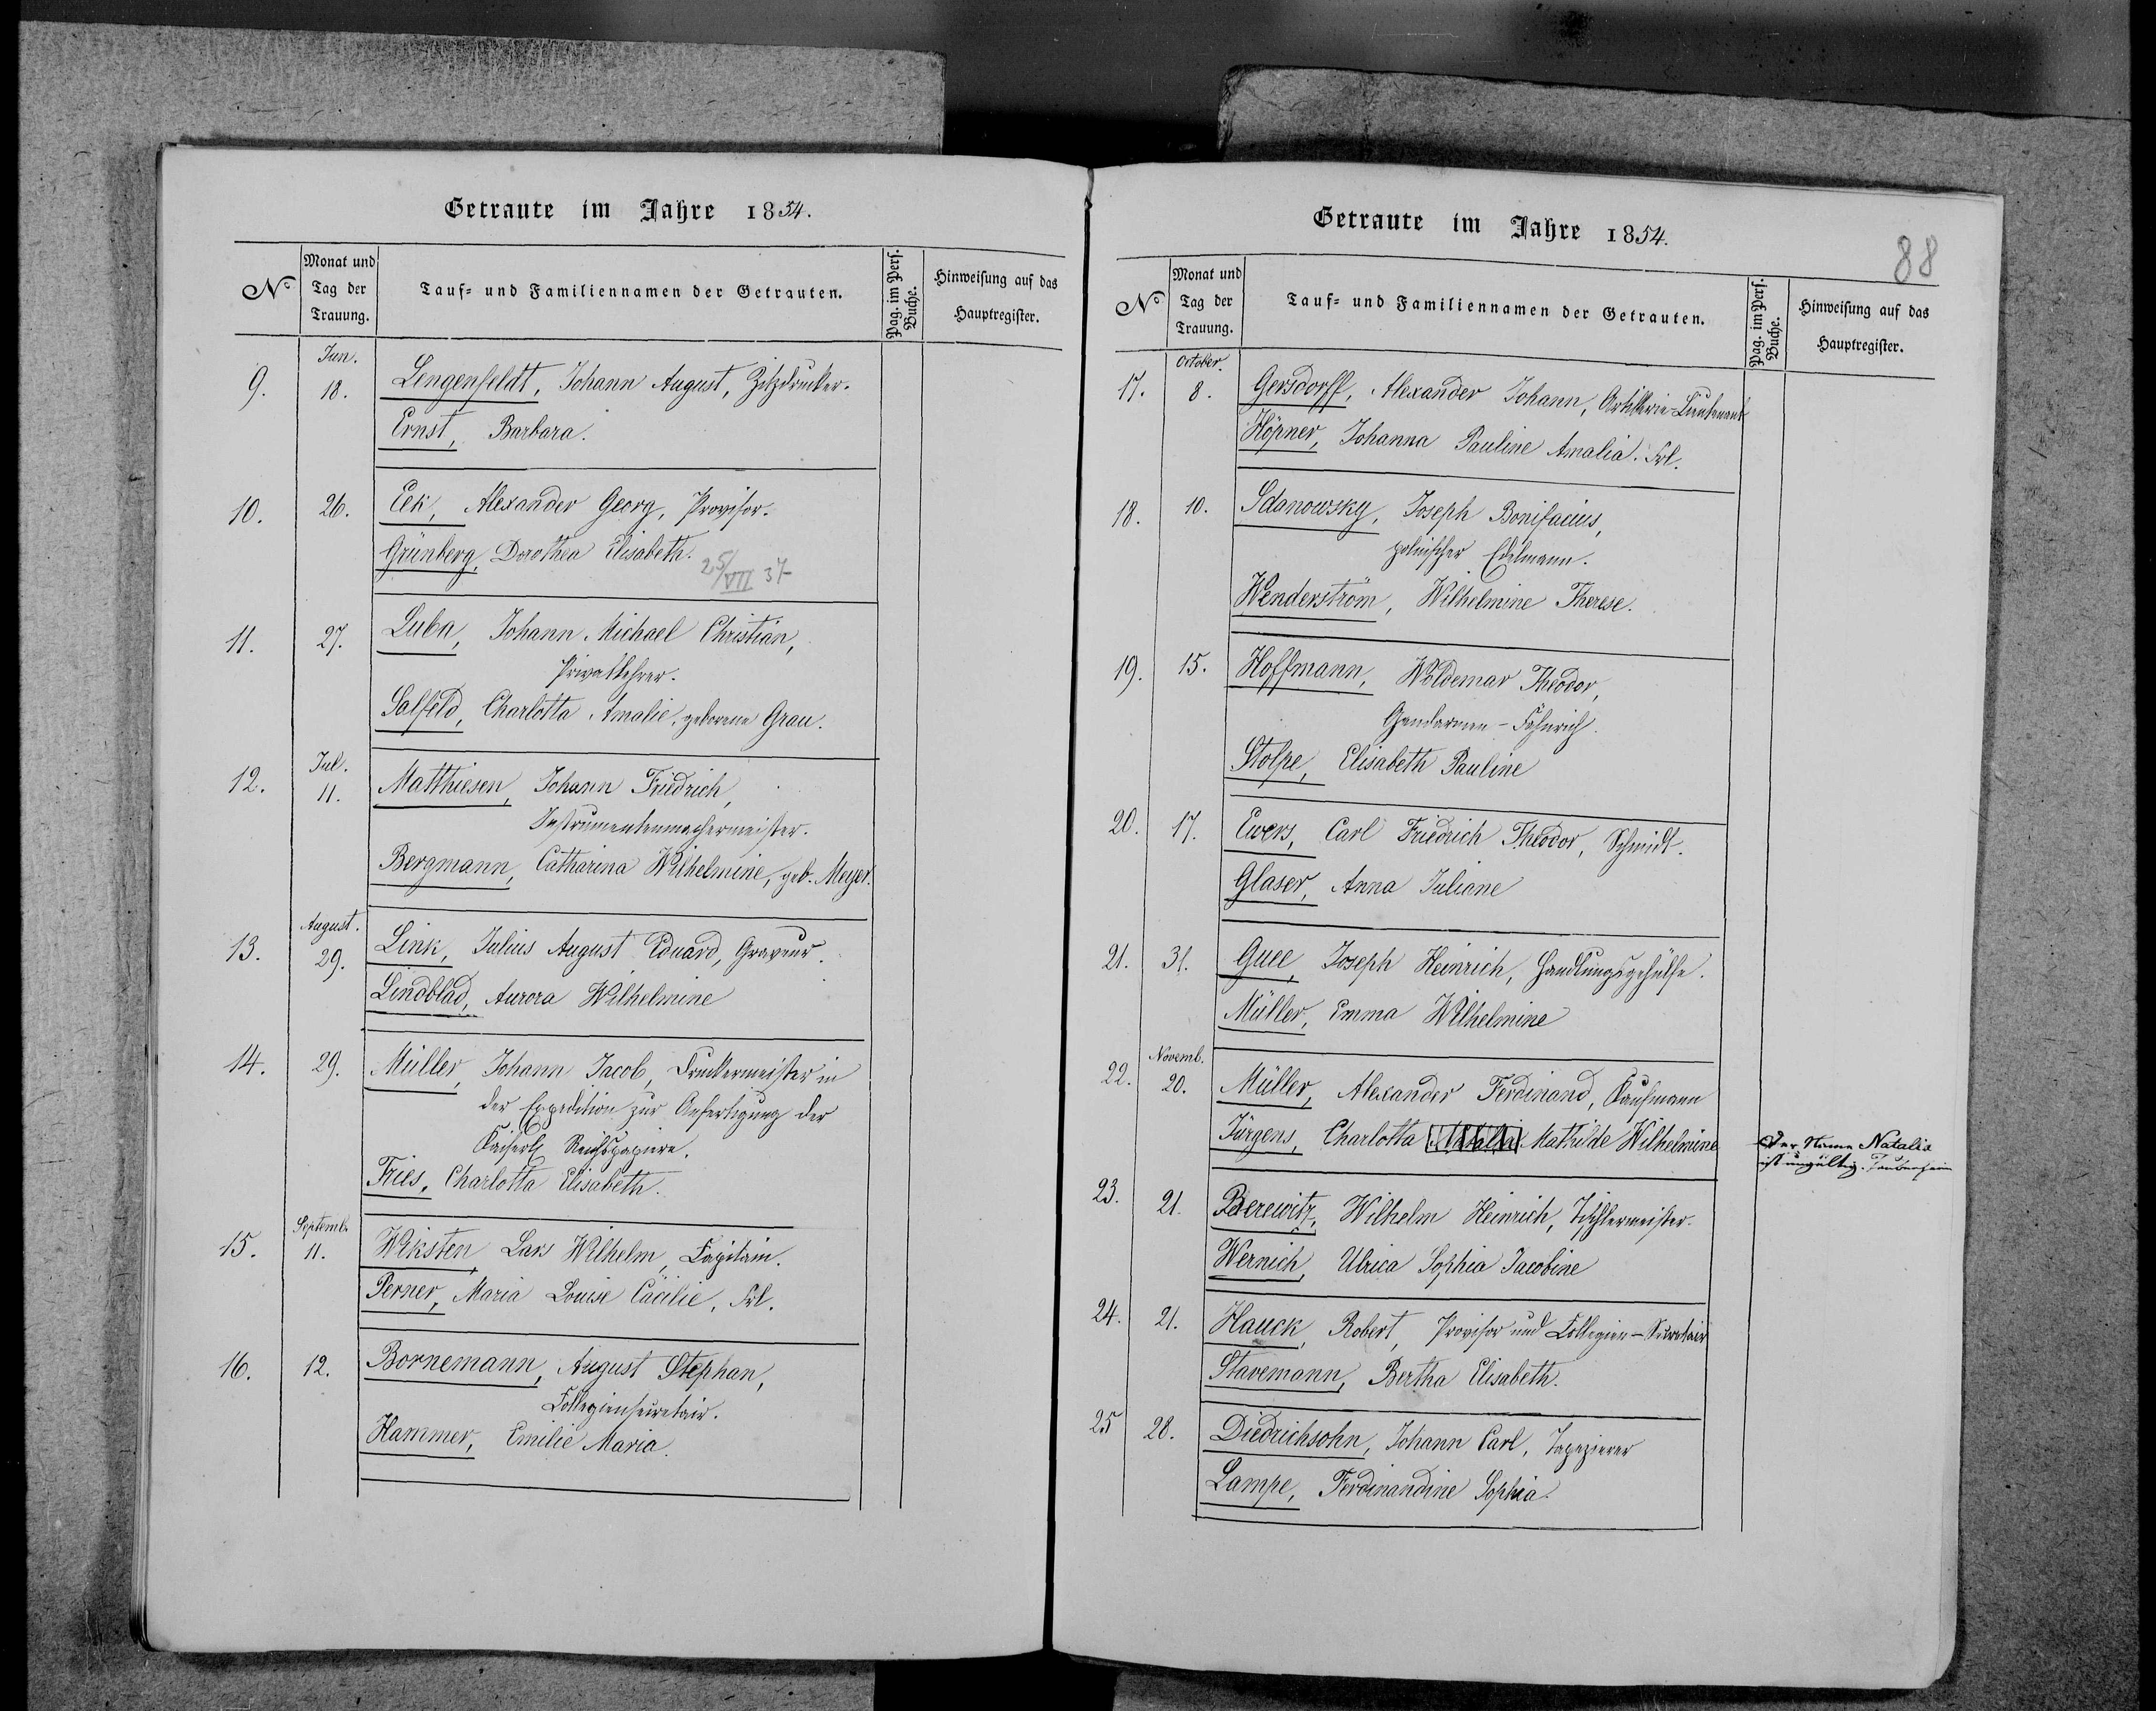 Getraute im Jahre 1854.
No
Monat und
Tag der
Trauung.
Tauf- und Familiennamen der Getrauten.
Pag. im Pers.
Buche.
Hinweisung auf das
Hauptregister.
Jun.
9. 18. Lengenfeldt, Johann August, Zitzdrucker.
Ernst, Barbara.
10. 26. Eek, Alexander Georg, Provisor.
Grünberg, Dorothea Elisabeth.
25/VII 37
11. 27. Luba, Johann Michael Christian,
Privatlehrer.
Salfeld, Charlotta Amalie, geborene Grau.
Jul.
12. 11. Matthiesen, Johann Friedrich,
Instrumentenmachermeister.
Bergmann, Catharina Wilhelmine, geb. Meyer.
August.
13. 29. Link, Julius August Eduard, Graveur.
Lindblad, Aurora Wilhelmine
14. 29. Müller, Johann Jacob, Druckermeister in
der Expedition zur Anfertigung der
Kaiserl. Reichspapiere.
Fries, Charlotta Elisabeth.
Septemb.
15. 11. Wiksten, Lars Wilhelm, Capitain.
Perner, Maria Louise Cäcilie, Frl.
16. 12. Bornemann, August Stephan,
Collegiensecretair.
Hammer, Emilie Maria.
Getraute im Jahre 1854.
88
No
Monat und
Tag der
Trauung.
Tauf- und Familiennamen der Getrauten.
Pag. im Pers.
Buche.
Hinweisung auf das
Hauptregister.
October.
17. 8. Gersdorff, Alexander Johann, Artillerie-Lieutenant
Höpner, Johanna Pauline Amalia. Frl.
18. 10. Sdanowsky, Joseph Bonifacius,
polnischer Edelmann.
Wenderström, Wilhelmine Therese.
19. 15. Hoffmann, Woldemar Theodor,
Gendarmen-Fähnrich.
Stolpe, Elisabeth Pauline
20. 17. Ewers, Carl Friedrich Theodor, Schmidt.
Glaser, Anna Juliane
21. 31. Guee, Joseph Heinrich, Handlungsgehülfe.
Müller, Emma Wilhelmine
Novemb.
22. 20. Müller, Alexander Ferdinand, Kaufmann
Jürgens, Charlotta Natalie Mathilde Wilhelmine
Der Name Natalie
ist ungültig. Taubenheim
23. 21. Berewitz, Wilhelm Heinrich, Tischlermeister.
Wernich, Ulrica Sophia Jacobine
24. 21. Hauck, Robert, Provisor und Collegien-Secretair
Stavemann, Bertha Elisabeth.
25 28. Diedrichsohn, Johann Carl, Tapezierer
Lampe, Ferdinandine Sophia.